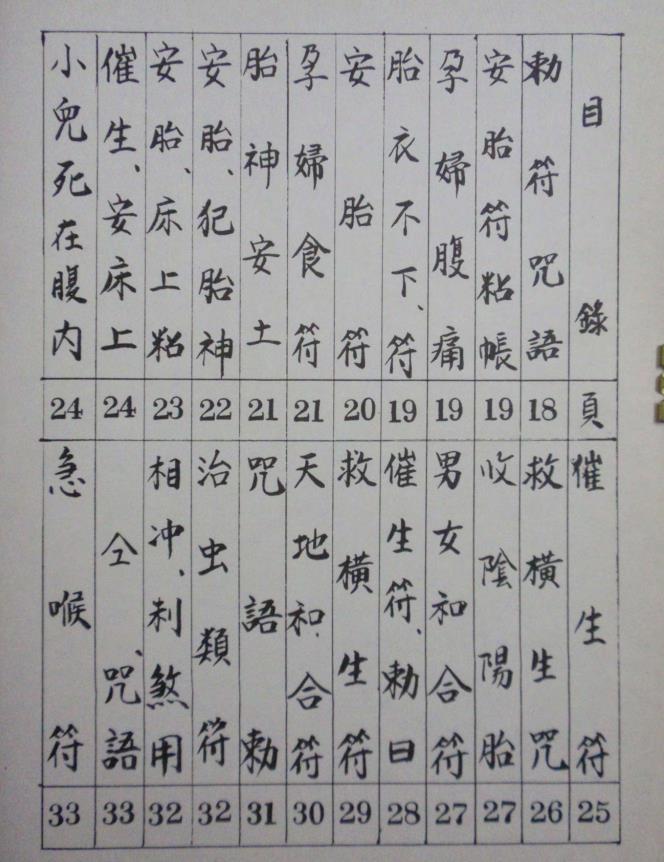 目錄 頁
勅符咒語 18
安胎符粘帳 19
孕婦腹痛 19
胎衣不下、符 19
安胎符 20
孕婦食符 21
胎神安土 21
安胎、犯胎神 22
安胎、床上粘 23
催生、安床上 24
小兒死在腹内 24
催生符 25
救橫生咒 26
收陰陽胎 27
男女和合符 27
催生符、勅曰 28
救橫生符 29
天地和、合符 30
咒語勅 31
治虫類符 32
相冲、刹煞用 32
仝、咒語 33
急喉符 33